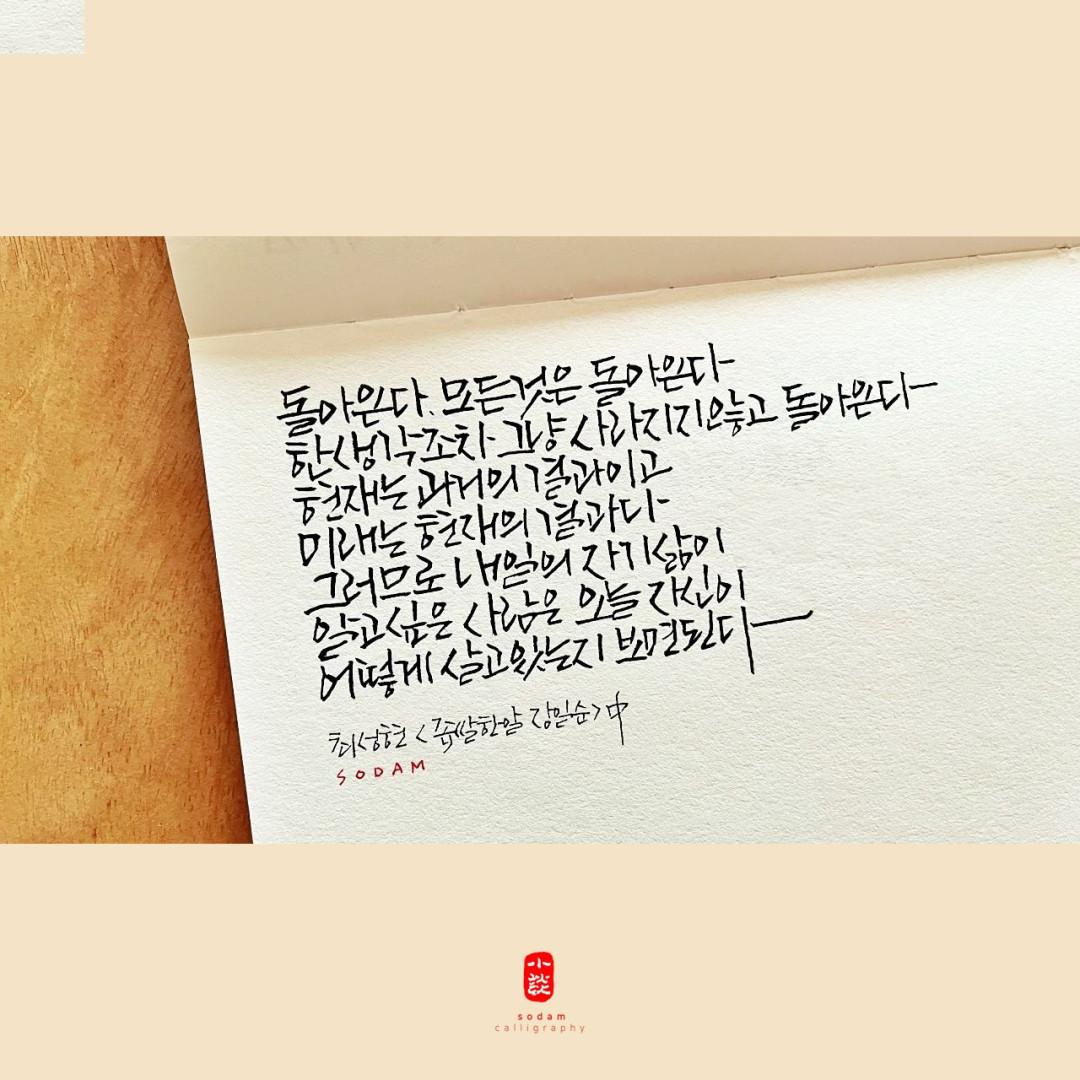 돌아온다. 모든것은 돌아온다
한생각조차 그냥 사라지지않고 돌아온다
현재는 과거의 결과이고
미래는 현재의 결과다
그러므로 내일의 자기삶이
알고싶은 사람은 오늘 자신이
어떻게 살고있는지 보면된다
최성현 <좁쌀한알 장일순> 中
SODAM
小談
sodam
calligraphy